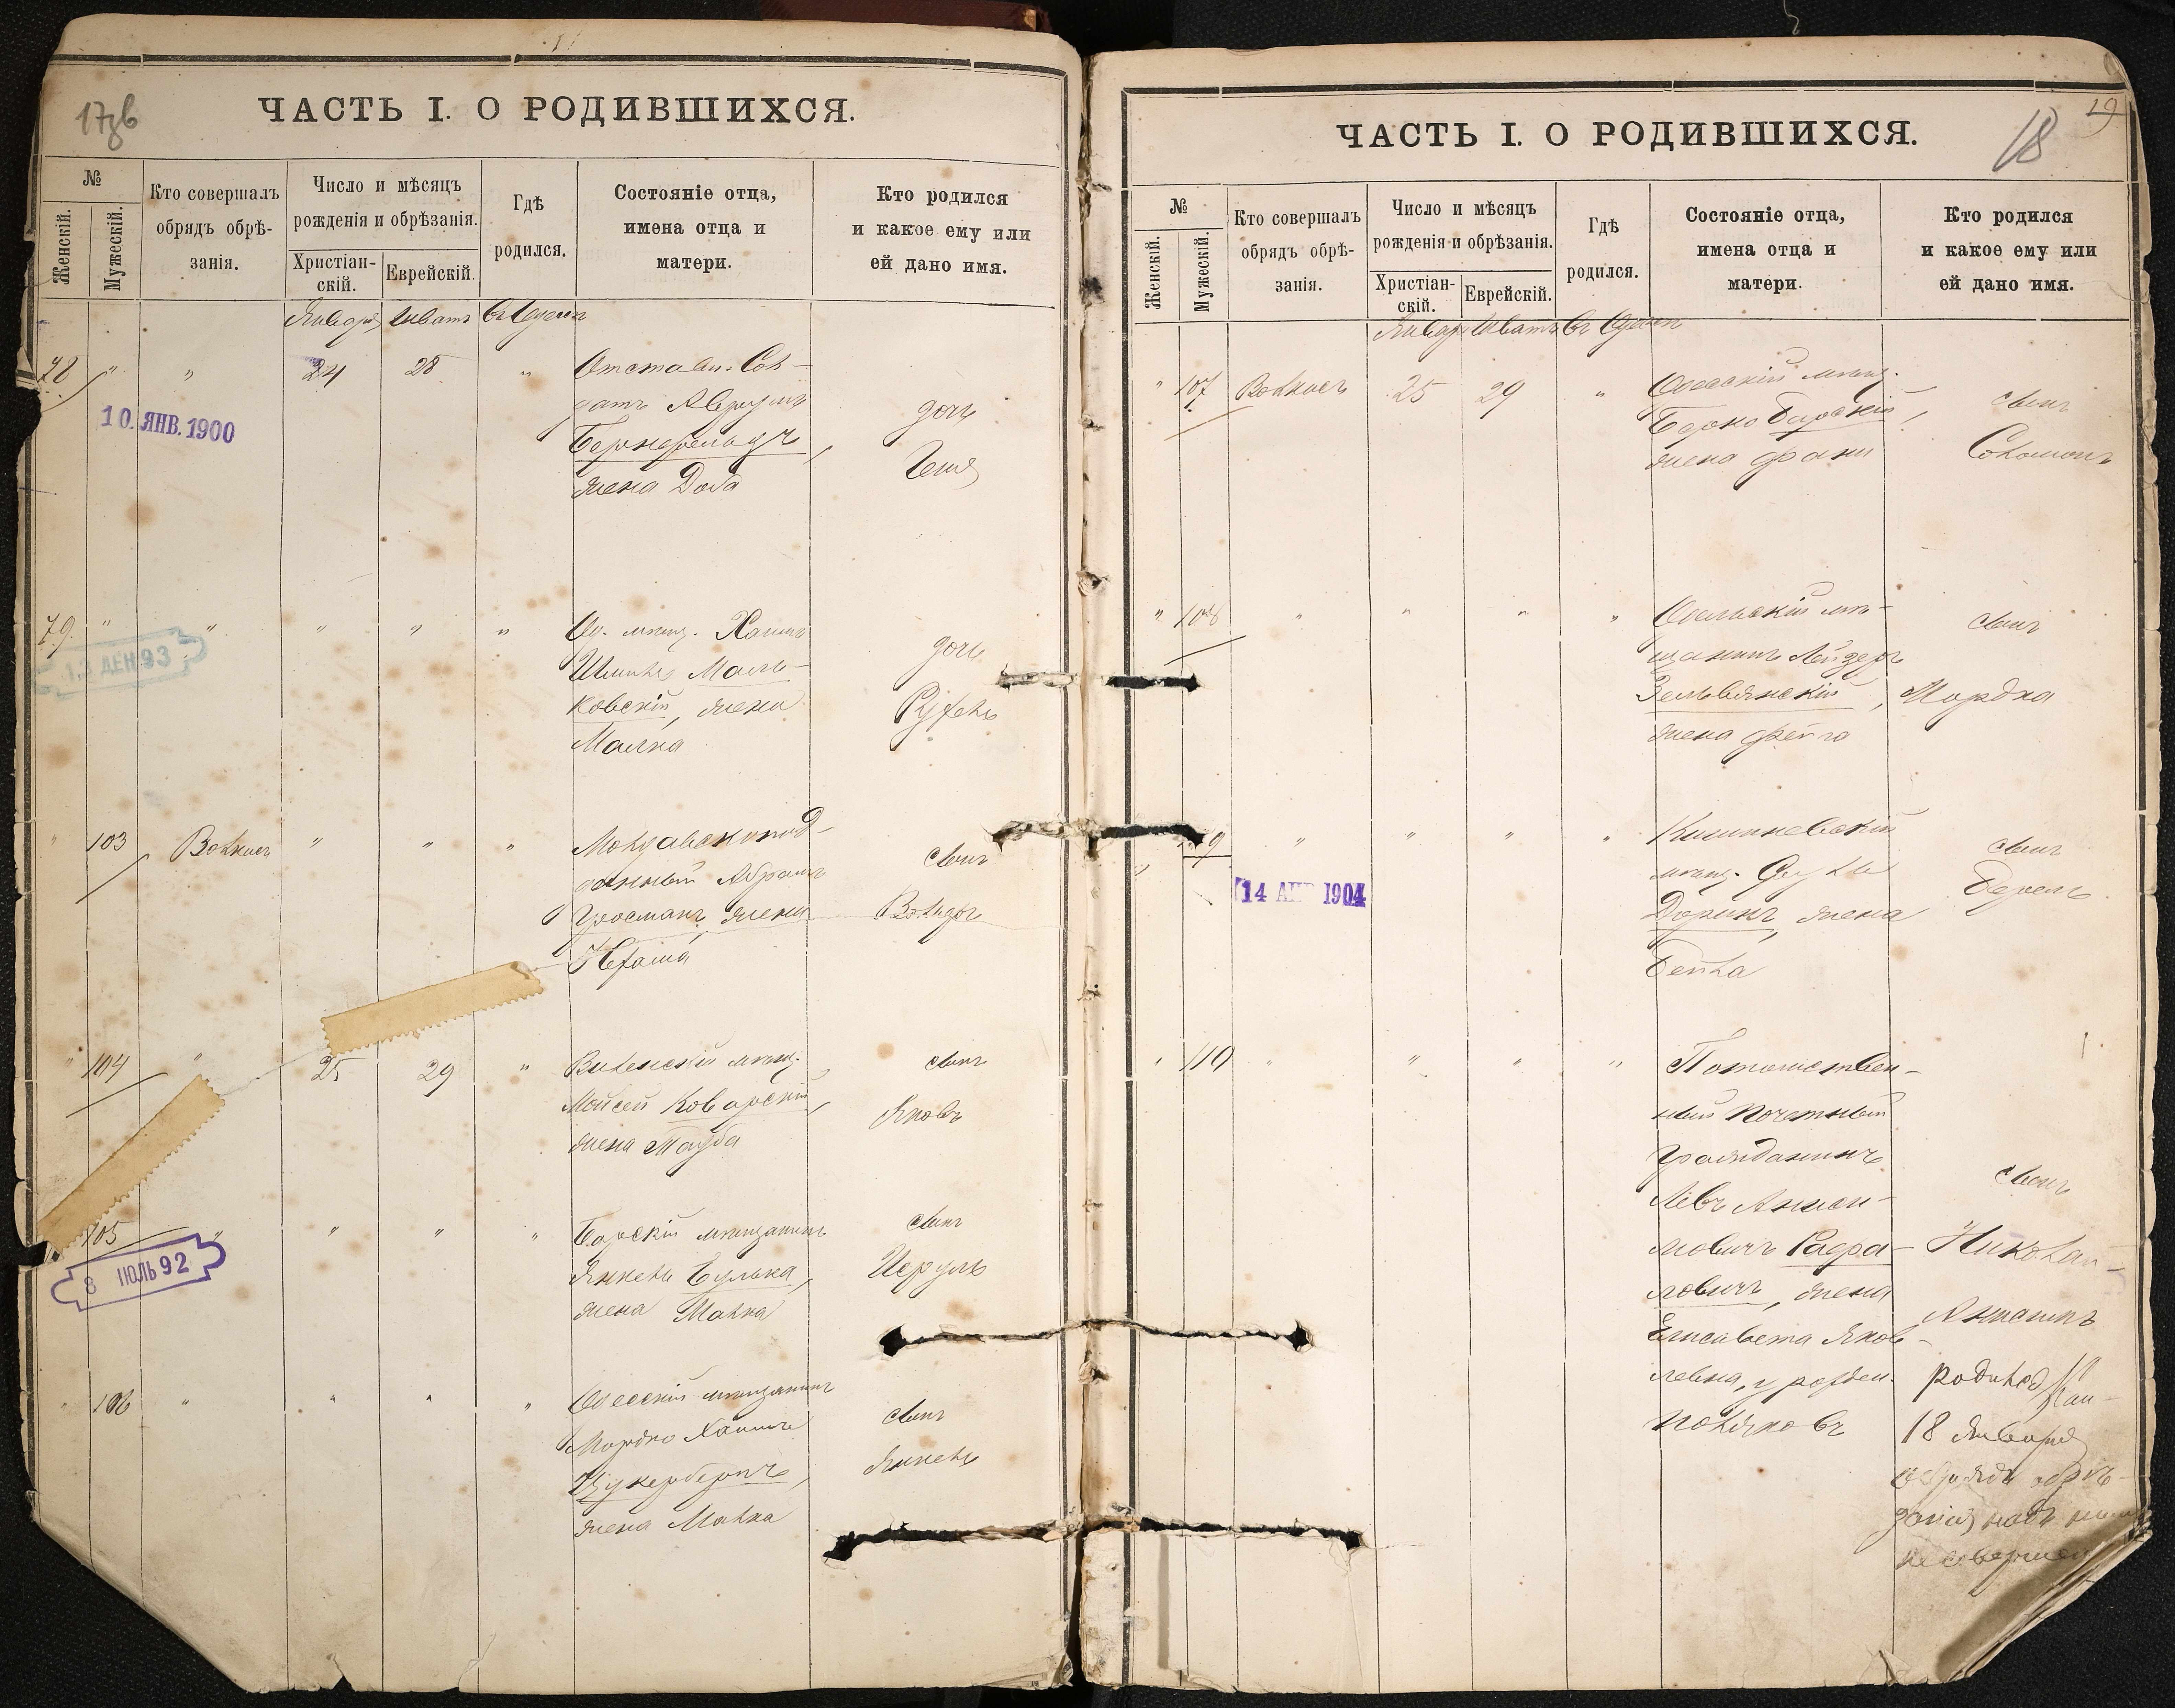 17об
ЧАСТЬ I. О РОДИВШИХСЯ.
№
Женскій.
Мужескій.
Кто совершалъ
обрядъ обрѣ-
занія.
Число и мѣсяцъ
рожденія и обрѣзанія.
Христіан-
скій.
Еврейскій.
Гдѣ
родился.
Состояніе отца,
имена отца и
матери.
Кто родился
и какое ему или
ей дано имя.
Январь Шватъ въ Одессѣ
78 " " 24 28 " Отставн. Сол-
датъ Аврумъ
Бернфельдъ,
жена Доба
дочь
Геня
10. ЯНВ. 1900
79. " " " " " Од. мѣщ. Хаимъ
Маль-
ковскій, жена
Малка
дочь
Рухель
93
" 103 Волкисъ " " " Молдавскоподд-
данный Абрамъ
Гросманъ, жена
Нехама
сынъ
Вольфъ
" 104 " 25 29 " Виленскій мѣщ.
Мойсей Коварскій,
жена Тауба
сынъ
Яковъ
105 " " " " Барскій мѣщанинъ
Янкель Булька,
жена Малка
сынъ
Исруль
8 ІЮЛЬ 92
" 106 " " " " Одесскій мѣщанинъ
Мордко Хаимъ
Цукербергъ,
жена Малка
сынъ
Янкель
19
18
ЧАСТЬ I. О РОДИВШИХСЯ.
№
Женскій.
Мужескій.
Кто совершалъ
обрядъ обрѣ-
занія.
Число и мѣсяцъ
рожденія и обрѣзанія.
Христіан-
скій.
Еврейскій.
Гдѣ
родился.
Состояніе отца,
имена отца и
матери.
Кто родился
и какое ему или
ей дано имя.
Январь Шватъ въ Одессѣ
" 107 Волкисъ 25 29 " Одесскій мѣщ.
Берко Бирскій,
жена Фани
сынъ
Соломонъ
" 108 " " " " мѣ-
щанинъ Лейзеръ
Зельвянскій,
жена Фейга
сынъ
Мордка
" 9 " " " " Кишиневскій
мѣщ.
Доринъ, жена
Бейла
сынъ
Берель
14 АПР 1904
" 110 " " " " Потомствен-
ный почетный
Гражданинъ
Левъ Анисі-
мовичъ Рафа-
ловичъ, жена
Елисавета Яков-
левна, урожден.
Поляковъ
сынъ
Николай-
родился
18 Января
обрядъ обрѣ-
занія надъ нимъ
не совершенъ